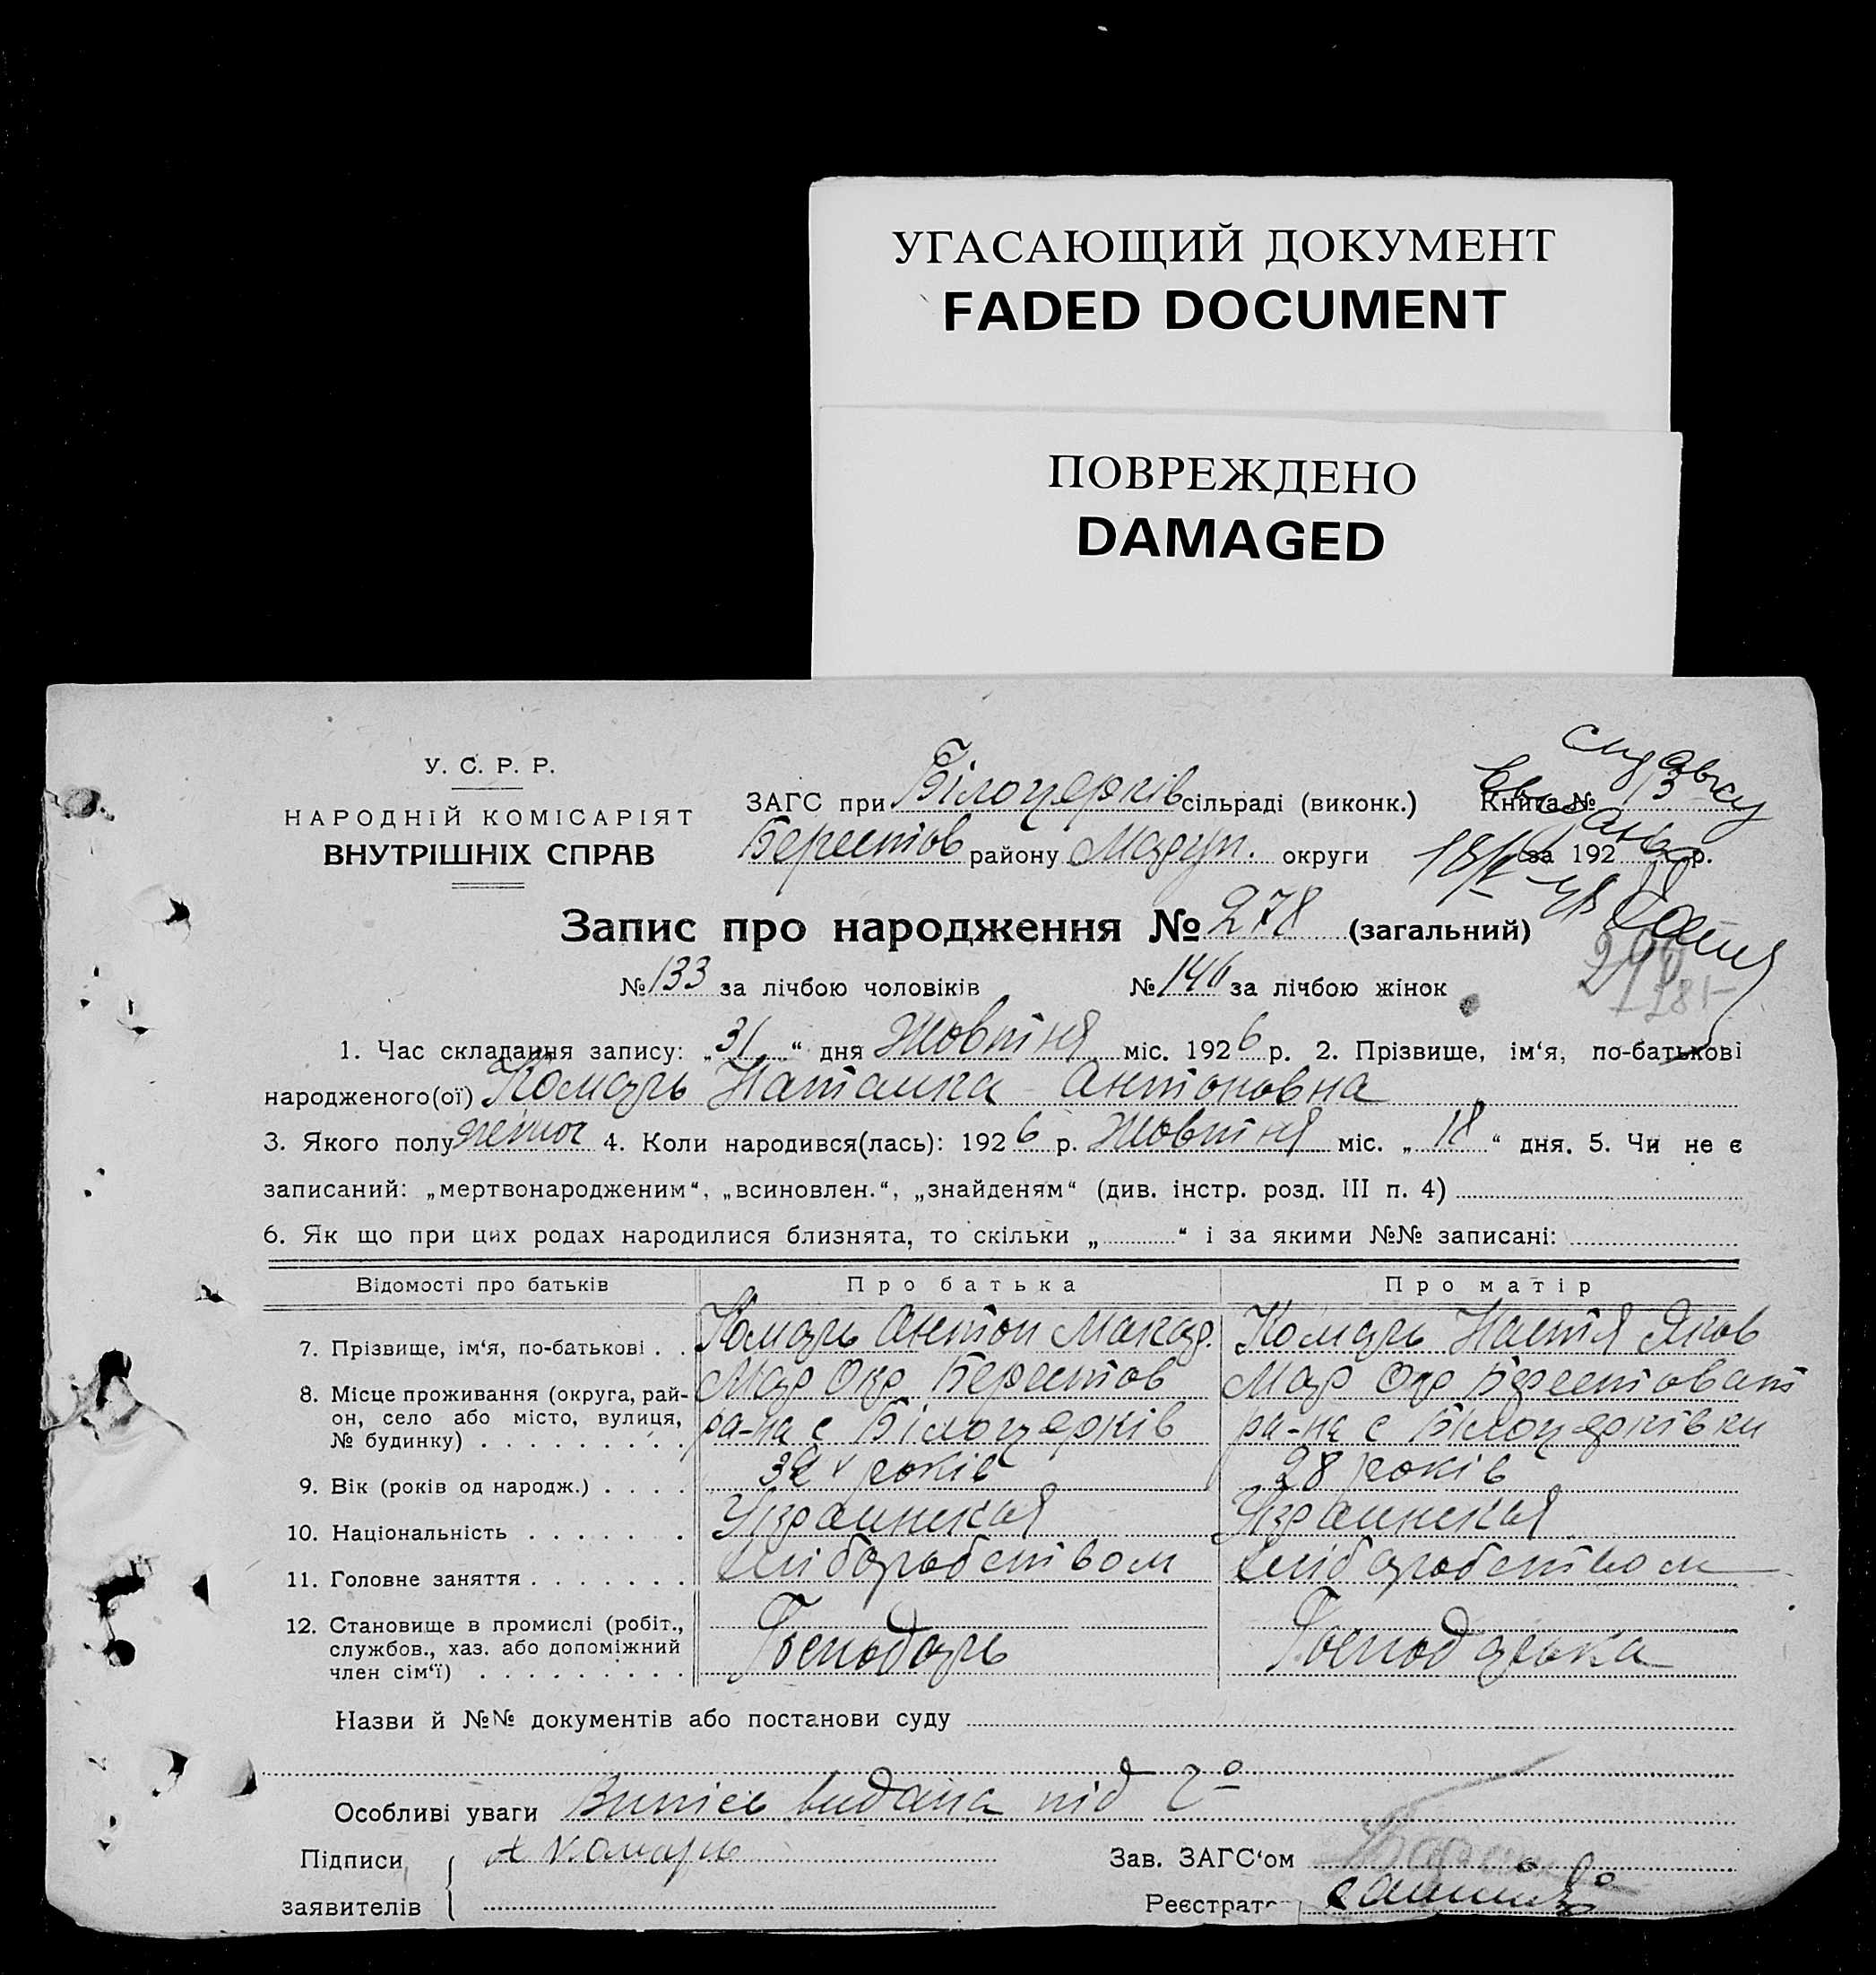 УГАСАЮЩИЙ ДОКУМЕНТ
FADED DOCUMENT
ПОВРЕЖДЕНО
DAMAGED
У. С. Р. Р.
НАРОДНІЙ КОМІСАРІЯТ
ВНУТРІШНІХ СПРАВ
ЗАГС при Білоцерків сільраді (виконк.) Книга № 3
Берестов району Маруп. округи за 192 р.
Запис про народження № 278 (загальний)
№ 133 за лічбою чоловіків № 146 за лічбою жінок
1. Час складання запису: „31“ дня Жовтня міс. 1926 р. 2. Прізвище, ім‘я, по-батькові
народженого(ої) Комарь Наталка Антоновна
3. Якого полу жіноч 4. Коли народився(лась): 1926 р. Жовтня міс. „18“ дня. 5. Чи не є
записаний: „мертвонародженим“, „всиновлен.“, „знайденям“ (див. інстр. розд. III п. 4)
6. Як що при цих родах народилися близнята, то скільки „ “ і за якими №№ записані:
Відомості про батьків Про батька Про матір
7. Прізвище, ім‘я, по-батькові . . Комарь Антон Макар. Комарь Настя Яков
8. Місце проживання (округа, рай- Мар Окр Берестов Мар Окр Берестоват
он, село або місто, вулиця, ра-на с Білоцерків ра-на с Білоцерківки
№ будинку) . . . . . . . . .
9. Вік (років од народж.) . . . . 32 років 28 років
10. Національність . . . . . . . Украинская Украинская
11. Головне заняття . . . . . . . хліборобством хліборобством
12. Становище в промислі (робіт.,
службов., хаз. або допоміжний Господарь Господарька
член сім‘ї) . . . . . . . . . .
Назви й №№ документів або постанови суду
Особливі уваги Випісь видана під
Підписи А Комарь Зав. ЗАГС‘ом
заявителів Реєстрато